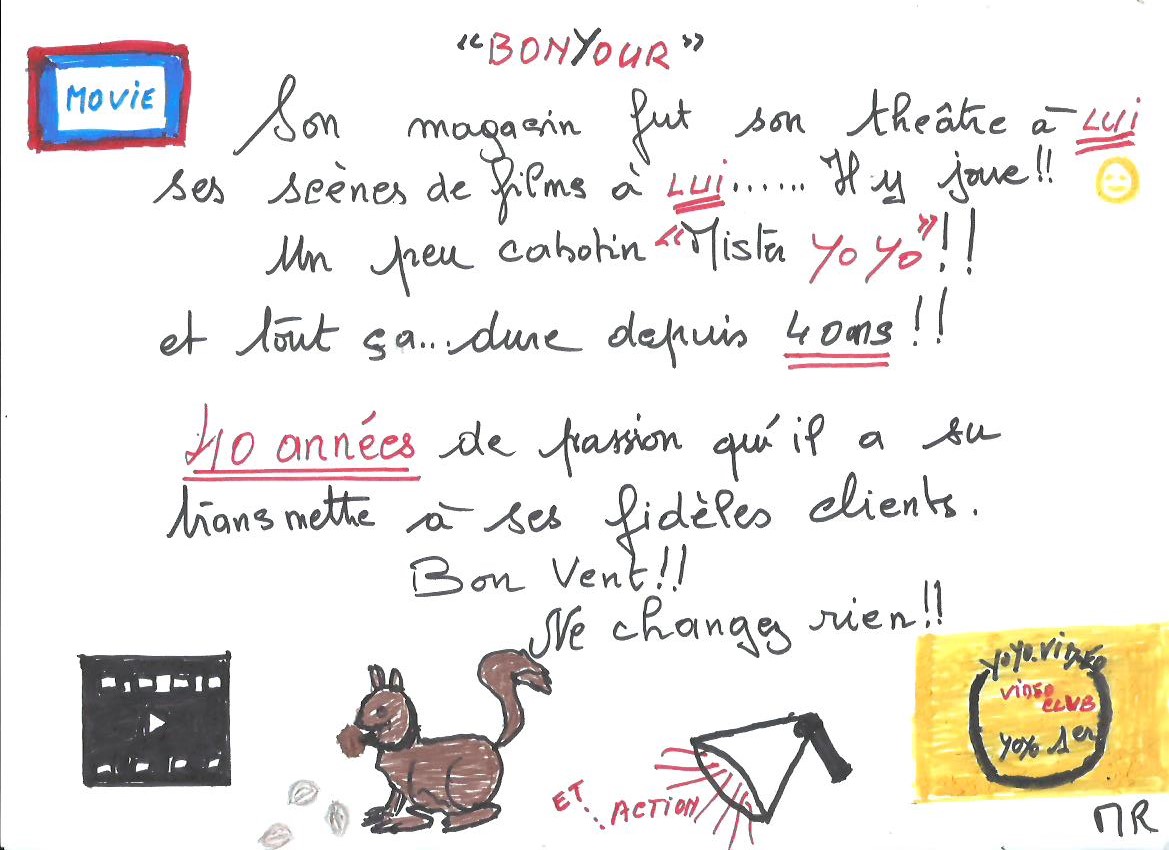 "BONYOUR"
MOVIE
Son magasin fut son theâtre à LUI
ses scènes de films à LUI...... Il y joue!!
Un peu cabotin "Mister YoYo"!!
et tout ça... dure depuis 40 ans!!
40 années de passion qu'il a su
transmettre à ses fidèles clients.
Bon Vent!!
Ne changez rien!!
YoYo.Vidéo
VIDEO
CLUB
YoYo 1er
ET.. ACTION
MR